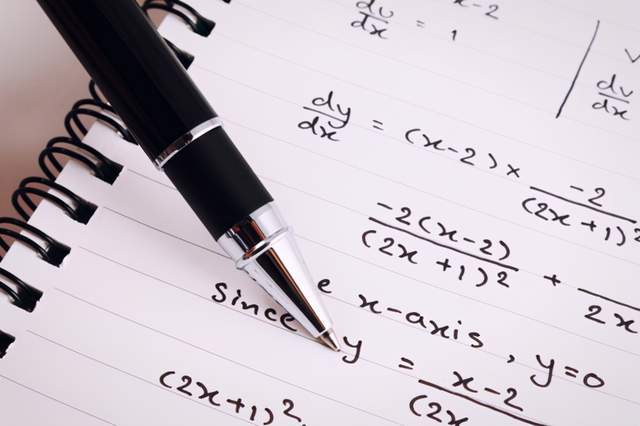 x-2
du/dx = 1
dv/dx
dy/dx = (x-2) × -2/(2x+1)²
-2(x-2)/(2x+1)² +
2x
Since e x-axis, y=0
y = x-2/(2x
(2x+1)²